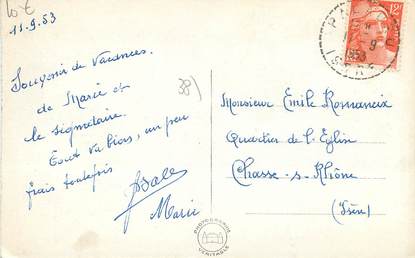 10 €
11.9.53
Souvenir de Vacances.
de Marie et
le signataire.
Tout va bien, un peu
frais toutefois
Marie
38)
12F
9
1953
ISERE
Monsieur Emile Romaneix
Quartier de l'Eglise
Chasse-s-Rhône
(Isère)
PHOTOGRAPHIE
VERITABLE